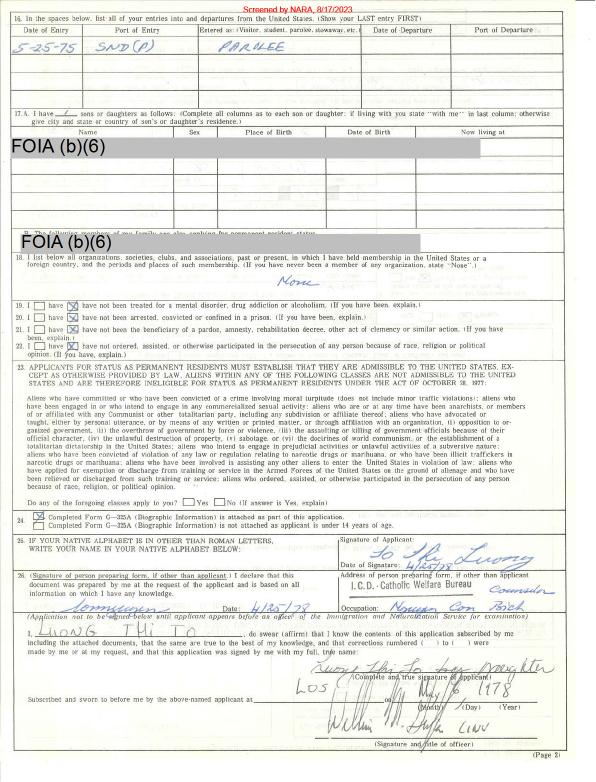 Screened by NARA, 8/17/2023
16. In the spaces below, list all of your entries into and departures from the United States. (Show your LAST entry FIRST)
Date of Entry Port of Entry Entered as: (Visitor, student, parolee, stowaway, etc.) Date of Departure Port of Departure
5-25-75 SND(P) PAROLEE
17.A. I have 1 sons or daughters as follows: (Complete all columns as to each son or daughter; if living with you state "with me" in last column; otherwise
give city and state or country of son's or daughter's residence.)
Name Sex Place of Birth Date of Birth Now living at
FOIA (b)(6)
FOIA (b)(6)
18. I list below all organizations, societies, clubs, and associations, past or present, in which I have held membership in the United States or a
foreign country, and the periods and places of such membership. (If you have never been a member of any organization, state "None".)
None
19. I have have not been treated for a mental disorder, drug addiction or alcoholism. (If you have been, explain.)
20. I have have not been arrested, convicted or confined in a prison. (If you have been, explain.)
21. I have have not been the beneficiary of a pardon, amnesty, rehabilitation decree, other act of clemency or similar action. (If you have
been, explain.)
22. I have have not ordered, assisted, or otherwise participated in the persecution of any person because of race, religion or political
opinion. (If you have, explain.)
23. APPLICANTS FOR STATUS AS PERMANENT RESIDENTS MUST ESTABLISH THAT THEY ARE ADMISSIBLE TO THE UNITED STATES. EX-
CEPT AS OTHERWISE PROVIDED BY LAW, ALIENS WITHIN ANY OF THE FOLLOWING CLASSES ARE NOT ADMISSIBLE TO THE UNITED
STATES AND ARE THEREFORE INELIGIBLE FOR STATUS AS PERMANENT RESIDENTS UNDER THE ACT OF OCTOBER 28, 1977:
Aliens who have committed or who have been convicted of a crime involving moral turpitude (does not include minor traffic violations); aliens who
have been engaged in or who intend to engage in any commercialized sexual activity; aliens who are or at any time have been, anarchists, or members
of or affiliated with any Communist or other totalitarian party, including any subdivision or affiliate thereof; aliens who have advocated or
taught, either by personal utterance, or by means of any written or printed matter, or through affiliation with an organization, (i) opposition to or-
ganized government, (ii) the overthrow of government by force or violence, (iii) the assaulting or killing of government officials because of their
official character, (iv) the unlawful destruction of property, (v) sabotage, or (vi) the doctrines of world communism, or the establishment of a
totalitarian dictatorship in the United States; aliens who intend to engage in prejudicial activities or unlawful activities of a subversive nature;
aliens who have been convicted of violation of any law or regulation relating to narcotic drugs or marihuana, or who have been illicit traffickers in
narcotic drugs or marihuana; aliens who have been involved in assisting any other aliens to enter the United States in violation of law; aliens who
have applied for exemption or discharge from training or service in the Armed Forces of the United States on the ground of alienage and who have
been relieved or discharged from such training or service; aliens who ordered, assisted, or otherwise participated in the persecution of any person
because of race, religion, or political opinion.
Do any of the foregoing classes apply to you? Yes No (If answer is Yes, explain)
24. Completed Form G-325A (Biographic Information) is attached as part of this application.
Completed Form G-325A (Biographic Information) is not attached as applicant is under 14 years of age.
25. IF YOUR NATIVE ALPHABET IS IN OTHER THAN ROMAN LETTERS,
WRITE YOUR NAME IN YOUR NATIVE ALPHABET BELOW:
Signature of Applicant:
To Thi Luong
Date of Signature: 4/25/78
26. (Signature of person preparing form, if other than applicant.) I declare that this
document was prepared by me at the request of the applicant and is based on all
information on which I have knowledge.
Date: 4/25/78
Address of person preparing form, if other than applicant
I.C.D. - Catholic Welfare Bureau
Counselor
Occupation:
(Application not to be signed below until applicant appears before an officer of the Immigration and Naturalization Service for examination)
I, LUONG THI TO, do swear (affirm) that I know the contents of this application subscribed by me
including the attached documents, that the same are true to the best of my knowledge, and that corrections numbered ( ) to ( ) were
made by me or at my request, and that this application was signed by me with my full, true name:
Luong Thi To
(Complete and true signature of applicant)
Subscribed and sworn to before me by the above-named applicant at LOS on May 16 1978
(Month) (Day) (Year)
(Signature and title of officer)
(Page 2)